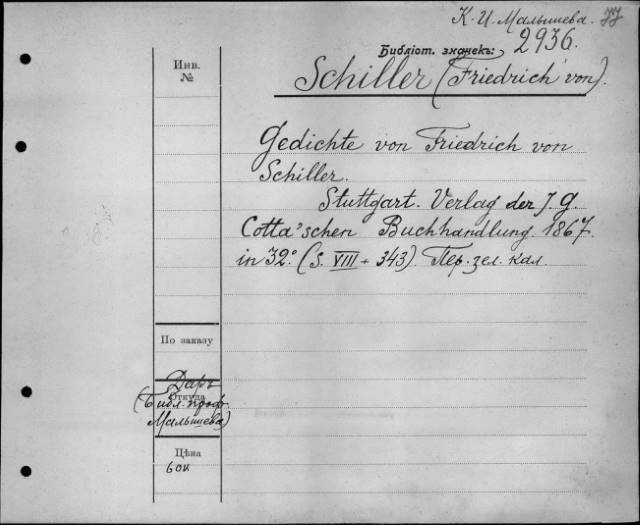 К. И. Малышева.
Библiот. экочекъ: 2936.
Инв.
№
Schiller (Friedrich von).
Gedichte von Friedrich von
Schiller.
Stuttgart. Verlag der J. G.
Cotta'schen Buchhandlung. 1867.
in 32.° (S. VIII + 343). Пер. зел. кал.
По заказу
Даръ
Откуда
(Библ. проф.
Малышева)
Цѣна
60к